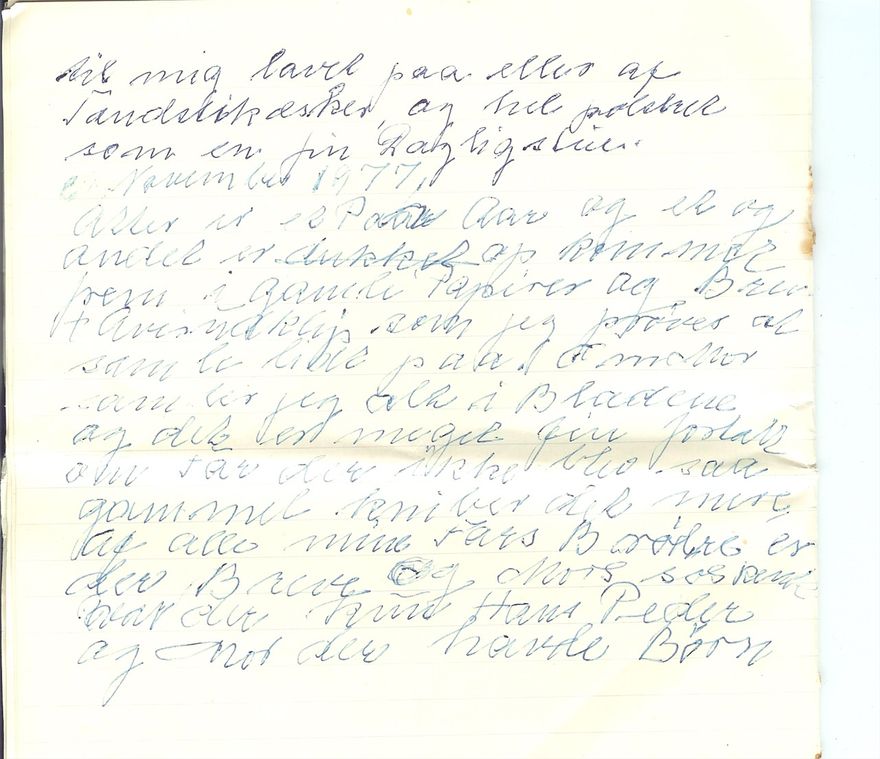 til mig lavet paa eller af
Tændstikæsker, og hel polstret
som en fin Dagligstue.
November 1977,
Atter er et Par Aar og et og
andet er dukket op kommer
frem i gamle Papirer og Breve
+ Avisudklip som jeg prøver at
samle lidt paa.
samler jeg alt i Bladene
og det er meget fin fortalt
om Far der ikke blev saa
gammel kniber det mere,
Af alle mine Fars Brødre er
der Breve og Mors søskende
var der kun Hans Peder
og Mor der havde Børn